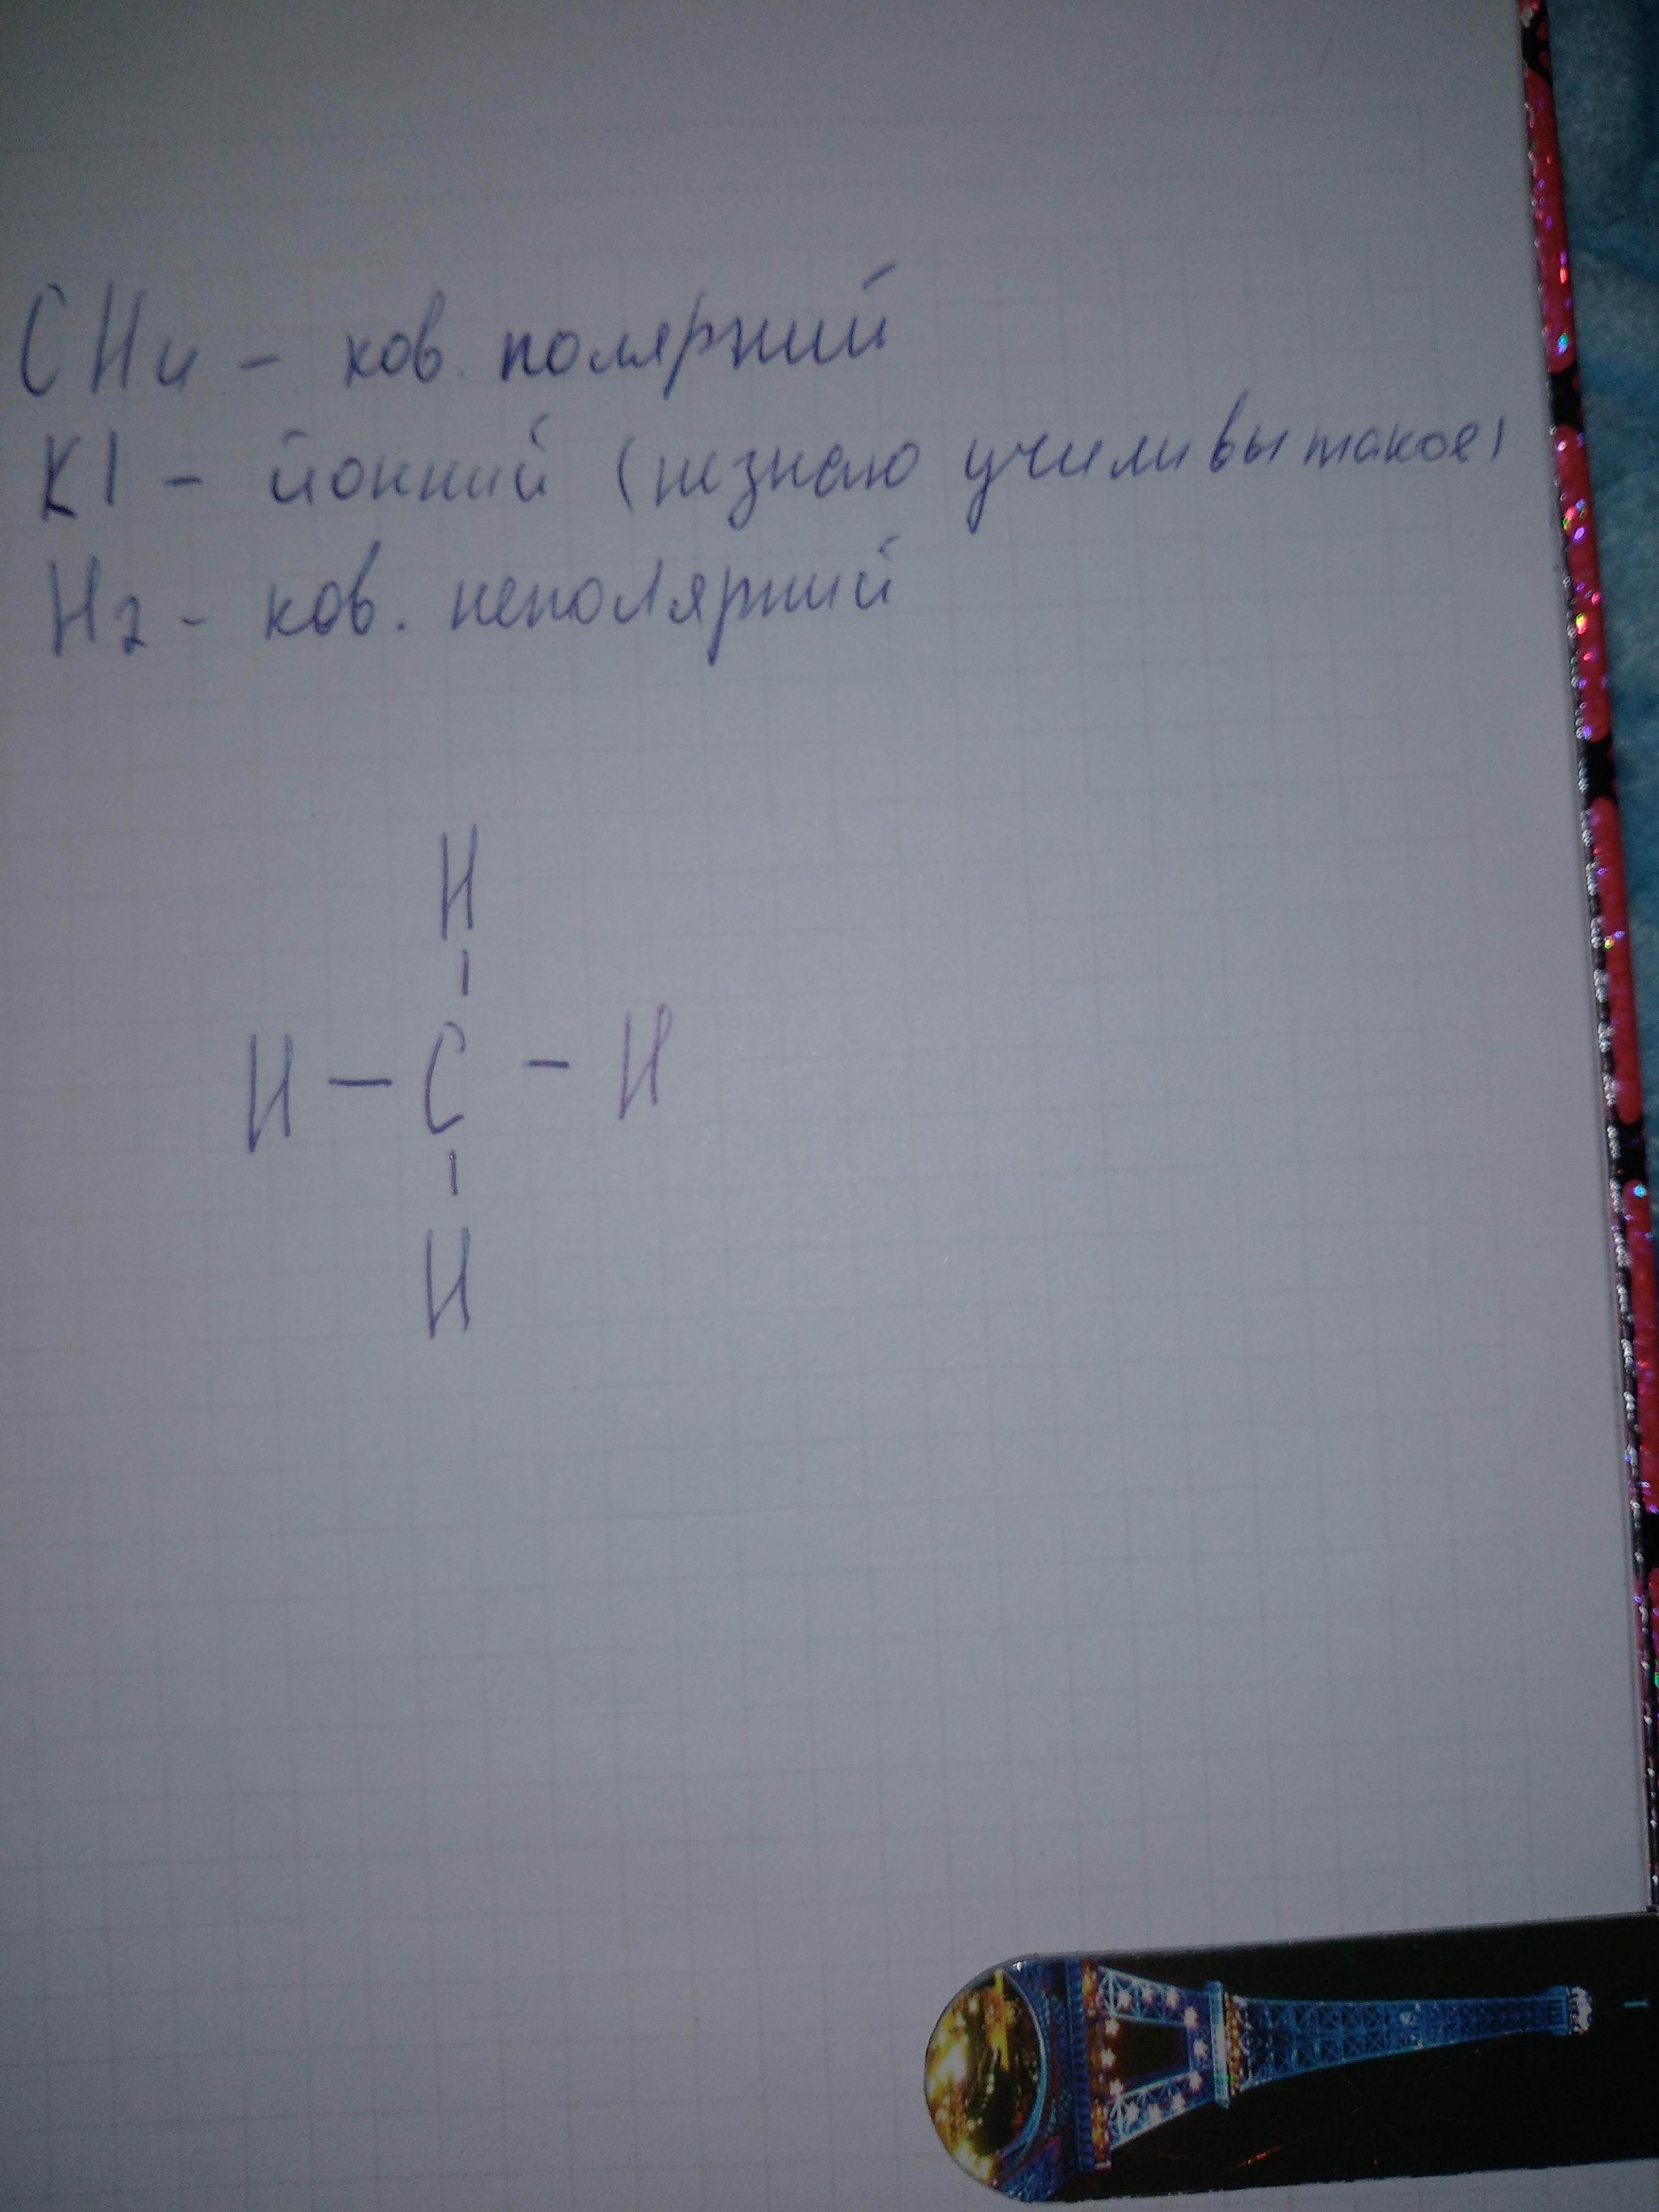 CH4 - ков. полярний
KI - йонний (незнаю учили вы такое)
H2 - ков. неполярний
H
H - C - H
H